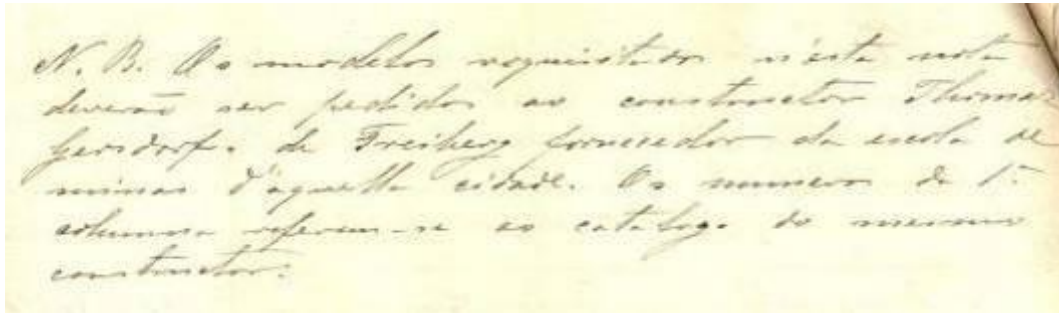 N. B. Os modelos requisitados n'esta nota
deverão ser pedidos ao constructor Thomas
Gersdorf. de Freiberg fornecedor da escola de
minas d'aquella cidade. Os numeros da 1ª
columna referem-se ao catalogo do mesmo
constructor.